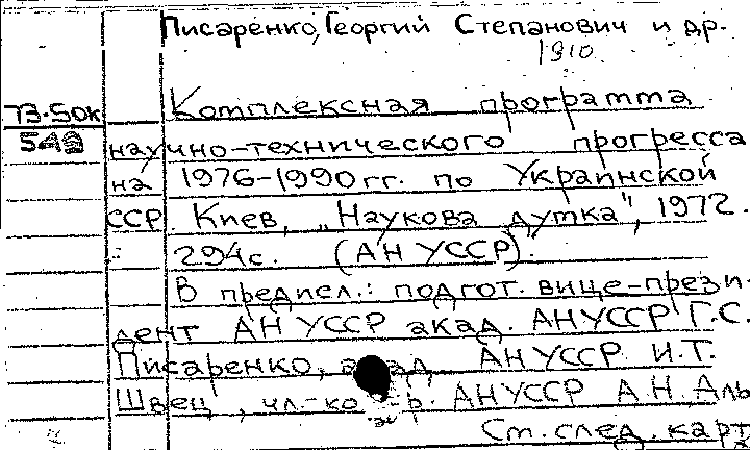 Писаренко, Георгий Степанович и др.
1910.
73.50к
549
Комплексная программа
научно-технического прогресса
на 1976-1990 гг. по Украинской
ССР. Киев, „Наукова думка", 1972.
294с. (АН УССР).
В предисл.: подгот. вице-прези-
дент АН УССР акад. АН УССР Г.С.
Писаренко, акад. АН УССР И.Т.
Швец, чл.-кор. АН УССР А.Н. Аль
См. след. карт